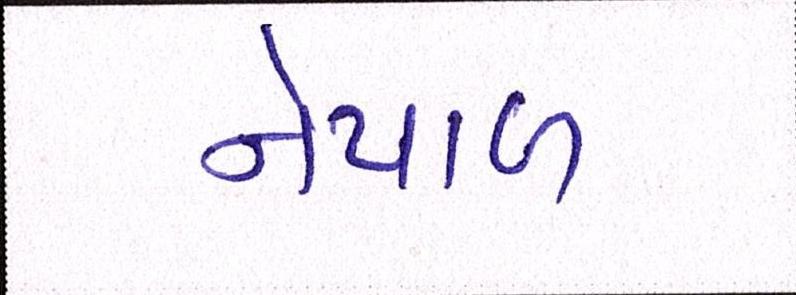 નેપાળ